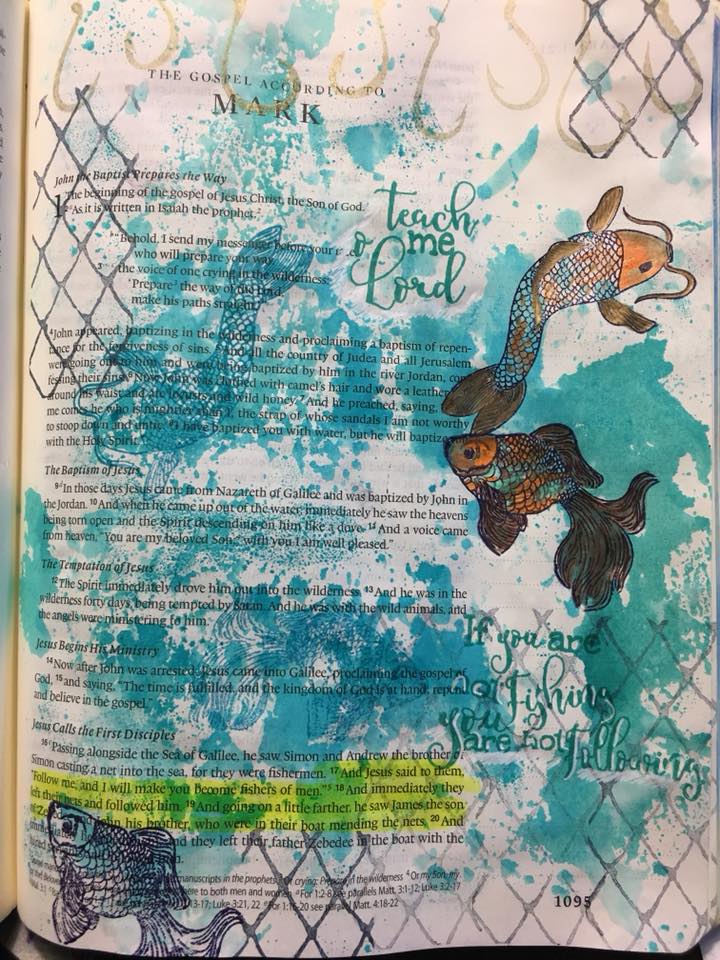 THE GOSPEL ACCORDING TO
MARK
John the Baptist Prepares the Way
1 The beginning of the gospel of Jesus Christ, the Son of God.
2 As it is written in Isaiah the prophet,
"Behold, I send my messenger before your
who will prepare your way,
3 the voice of one crying in the wilderness:
'Prepare the way of the Lord,
make his paths straight,'"
teach
me
o Lord
4 John appeared, baptizing in the wilderness and proclaiming a baptism of repen-
tance for the forgiveness of sins. 5 And all the country of Judea and all Jerusalem
were going out to him and were being baptized by him in the river Jordan, con-
fessing their sins. 6 Now John was clothed with camel's hair and wore a leather
around his waist and ate locusts and wild honey. 7 And he preached, saying,
me comes he who is mightier than I, the strap of whose sandals I am not worthy
to stoop down and untie. 8 I have baptized you with water, but he will baptize
with the Holy Spirit."
The Baptism of Jesus
9 In those days Jesus came from Nazareth of Galilee and was baptized by John in
the Jordan. 10 And when he came up out of the water, immediately he saw the heavens
being torn open and the Spirit descending on him like a dove. 11 And a voice came
from heaven, "You are my beloved Son; with you I am well pleased."
The Temptation of Jesus
12 The Spirit immediately drove him out into the wilderness. 13 And he was in the
wilderness forty days, being tempted by Satan. And he was with the wild animals, and
the angels were ministering to him.
Jesus Begins His Ministry
14 Now after John was arrested, Jesus came into Galilee, proclaiming the gospel of
God, 15 and saying, "The time is fulfilled, and the kingdom of God is at hand; repent
and believe in the gospel."
If you are
not fishing
you
are not following
Jesus Calls the First Disciples
16 Passing alongside the Sea of Galilee, he saw Simon and Andrew the brother of
Simon casting a net into the sea, for they were fishermen. 17 And Jesus said to them,
"Follow me, and I will make you become fishers of men." 5 18 And immediately they
left their nets and followed him. 19 And going on a little farther, he saw James the son
his brother, who were in their boat mending the nets. 20 And
and they left their father Zebedee in the boat with the
manuscripts in the prophets Or crying: Prepare in the wilderness 4 Or my Son, my
here to both men and women For 1:2-8 see parallels Matt. 3:1-12; Luke 3:2-17
13-17; Luke 3:21, 22 For 1:16-20 see parallel Matt. 4:18-22
1095